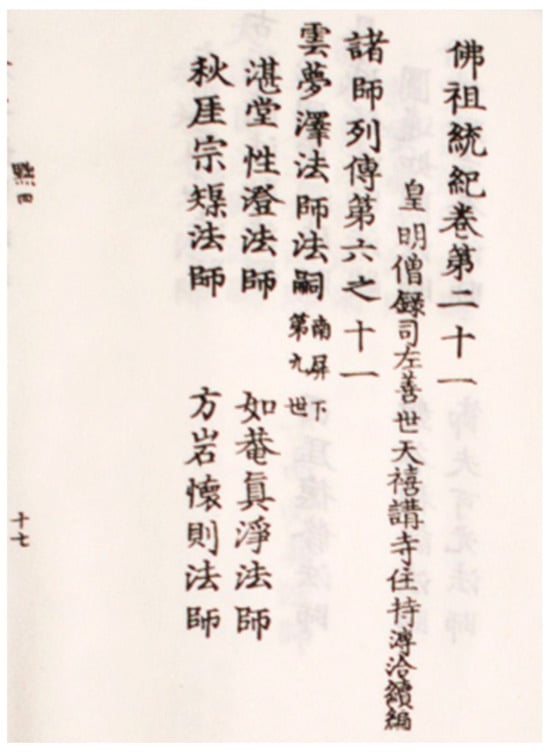 佛祖統紀卷第二十一
皇明僧錄司左善世天禧講寺住持溥洽續編
諸師列傳第六之十一
雲夢澤法師法嗣南屏下第九世
湛堂性澄法師 如菴真淨法師
秋厓宗䂓法師 方岩懷則法師
十七